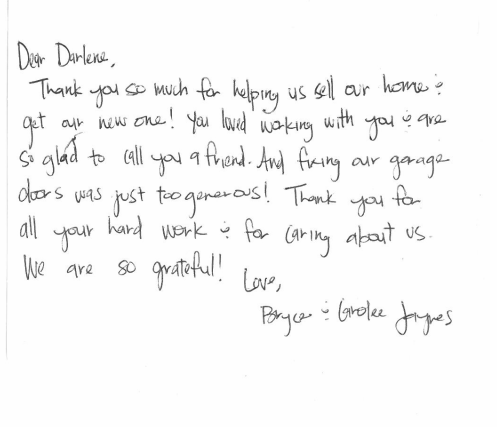 Dear Darlene,
Thank you so much for helping us sell our home &
get our new one! You loved working with you & are
so glad to call you a friend. And fixing our garage
doors was just too generous! Thank you for
all your hard work & for caring about us.
We are so grateful!
Love,
Bryce & Carolee Jaynes